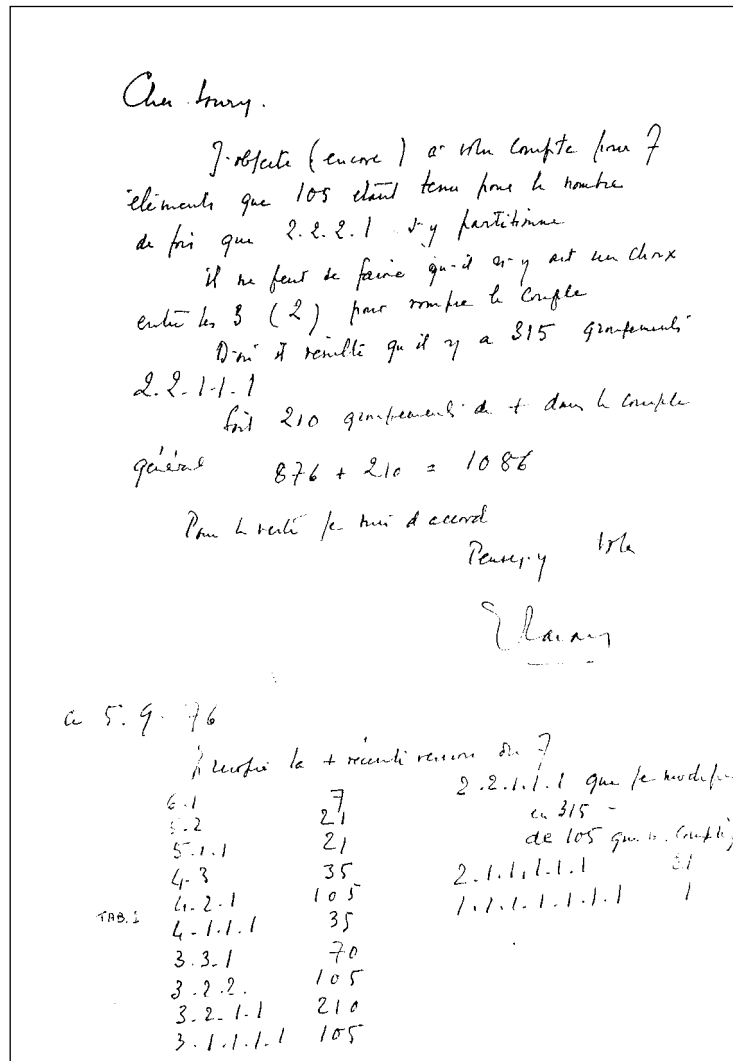 Cher Soury.
J'objecte (encore) à votre compte pour 7
éléments que 105 étant tenu pour le nombre
de fois que 2.2.2.1 s'y partitionne
il ne peut se faire qu'il n'y ait un choix
entre les 3 (2) pour rompre le couple
D'où il résulte qu'il y a 315 groupements
2.2.1.1.1
Soit 210 groupements de + dans le compte
général 876 + 210 = 1086
Pour le reste je suis d'accord
Pensez-y Votre
J Lacan
Ce 5.9.76
la + récente version du 7
6.1 7
5.2 21
5.1.1 21
4.3 35
4.2.1 105
TAB.1 4.1.1.1 35
3.3.1 70
3.2.2. 105
3.2.1.1 210
3.1.1.1.1 105
2.2.1.1.1 que je modifie
en 315 -
de 105 que v. comptiez
2.1.1.1.1.1 21
1.1.1.1.1.1.1 1